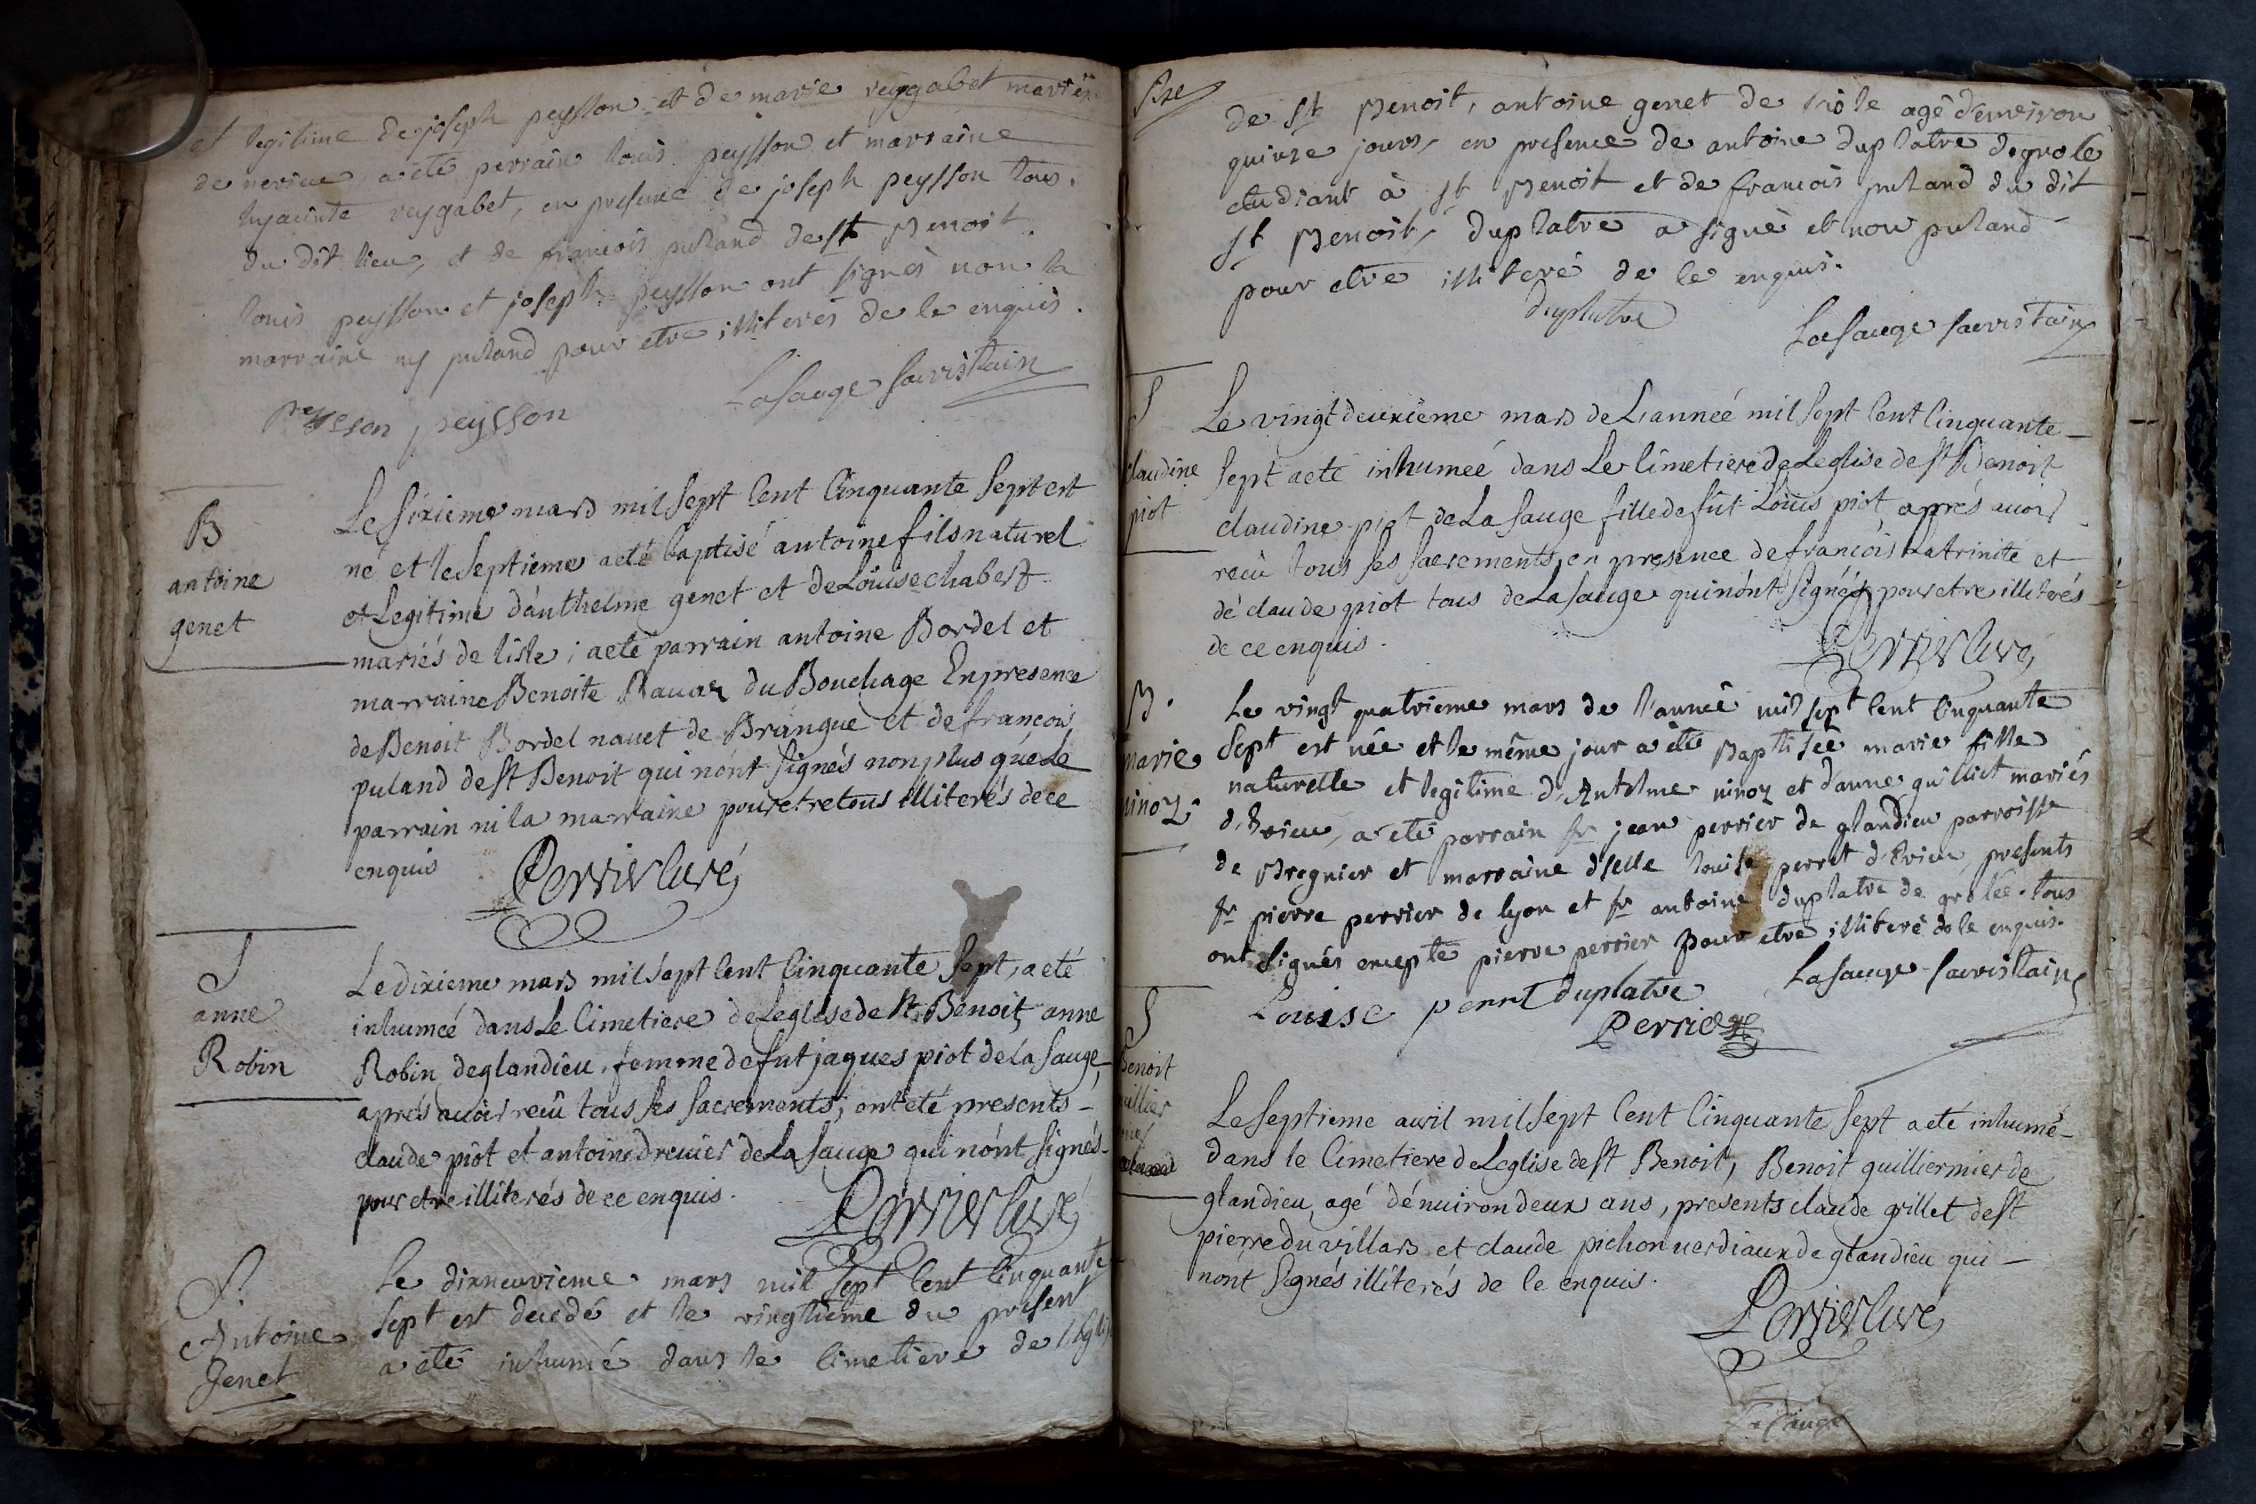 et legitime de joseph peysson et de marie reygabet mariés
de verieu, a été perrain louis peysson et marraine
hyacinte reygabet, en presence de joseph peysson tous
du dit lieu, et de francois puland de st Benoit.
louis peysson et joseph peysson ont signés non la
marraine ny puland pour etre illiterés de le enquis.
Lasauge sacristain
peysson peysson
B
antoine
genet
Le sixieme mars mil sept Cent Cinquante Sept est
né et le Septieme aeté baptisé antoine fils naturel
et Legitime d'anthelme genet et de Loüise chabert
mariés de lisle; aeté parrain antoine Bordel et
marraine Benoite Ravaz du Bouchage En presence
de Benoit Bordel navet de Brangue et de francois
puland de st Benoit qui n'ont signés non plus que le
parrain ni la marraine pour etre tous illiterés de ce
enquis
Perrier Curé
S
anne
Robin
Le dixieme mars mil sept Cent Cinquante Sept, aeté
inhumeé dans Le Cimetiere de Leglise de St Benoit, anne
Robin de glandieu, femme de fut jaques piot de La Sauge,
aprés avoir recû tous ses sacrements, ont eté presents
claude piot et antoine drevier de La Sauge qui n'ont signés
pour etre illiterés de ce enquis.
Perrier Curé
S.
Antoine
Jenet
Le dixneuvieme mars mil sept Cent Cinquante
sept est decedé et le vingtieme du present
a eté inhumé dans le Cimetiere de l'eglise
de St Benoit, antoine genet de l'isle agé d'environ
quinze jours, en presence de antoine duplatre de grolé
etudiant à st Benoit et de francois puland du dit
st Benoit, duplatre a signé et non puland
pour etre illiteré de le enquis.
duplatre
Lasauge sacristain
S
Claudine
piot
Le vingt deuxieme mars de L'anneé mil sept Cent Cinquante
Sept aeté inhumeé dans Le Cimetiere de Leglise de st Benoit
claudine piot de La Sauge fille de fût Loüis piot, aprés avoir
recû tous ses sacrements, en presence de francois Latrinité et
de claude piot tous de La Sauge qui n'ont signés pour etre illiterés
de ce enquis.
Perrier Curé
B.
marie
ninoz.
Le vingt quatrieme mars de l'année mil sept Cent Cinquante
Sept est née et le même jour a été Baptisée marie fille
naturelle et legitime d'Antelme ninoz et d'anne quilliet mariés
d'Evieu, a eté parrain sr jean perrier de glandieu parroisse
de Bregnier et marraine dselle louise perret d'Evieu, presents
sr pierre perrier de lyon et sr antoine duplatre de grolée. tous
ont signés excepte pierre perrier pour etre illiteré de le enquis.
Lasauge sacristain
Louise perret duplatre
Perrier
S
Benoit
Le septieme avril mil sept Cent Cinquante Sept a eté inhumé
dans le Cimetiere de Leglise de st Benoit, Benoit guilliermier de
glandieu, agé d'environ deux ans, presents claude grillet de st
pierre du villars et claude pichon verdiaux de glandieu qui
n'ont Signés illiterés de le enquis.
Perrier Curé